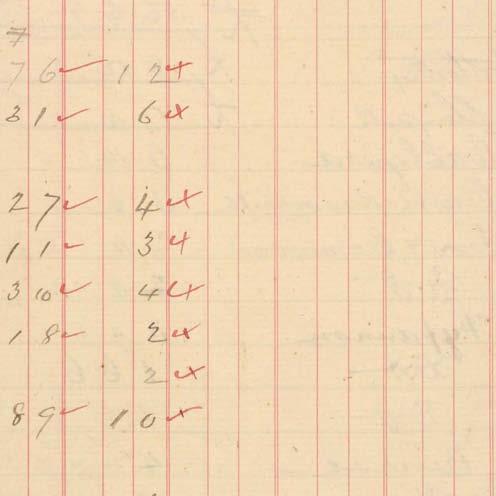 7
76 ✓ 12 ×
31 ✓ 6 ×
27 ✓ 4 ×
11 ✓ 3 ×
30 ✓ 4 ×
18 ✓ 2 ×
2 ×
89 ✓ 10 ×